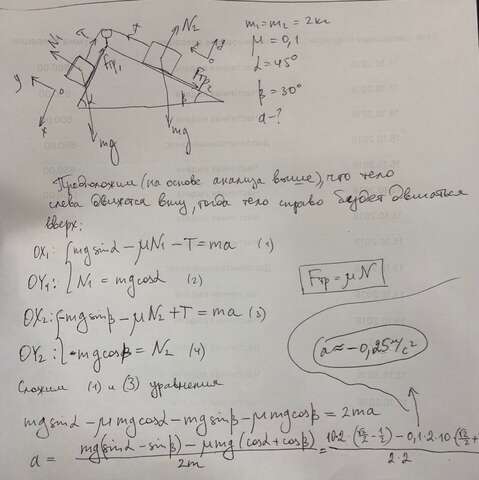 m₁=m₂ = 2кг
μ = 0,1
α=45°
β=30°
a-?
N₁
T
T
N₂
y
x
o
x
y
o
Fтр₁
Fтр₂
α
β
mg
mg
Предположим (на основе анализа выше), что тело
слева движется вниз, тогда тело справо будет двигаться
вверх:
OX₁: mgsinα - μN₁ - T = ma (1)
OY₁: N₁ = mgcosα (2)
Fтр = μN
OX₂: -mgsinβ - μN₂ + T = ma (3)
OY₂: mgcosβ = N₂ (4)
a ≈ -0,25 м/с²
Сложим (1) и (3) уравнения
mgsinα - μmgcosα - mgsinβ - μmgcosβ = 2ma
a = mg(sinα - sinβ) - μmg(cosα + cosβ) / 2m = 10·2·(√2/2 - 1/2) - 0,1·2·10(√3/2 + / 2·2